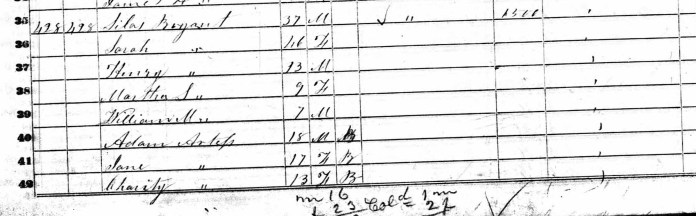 35 498 498 Silas Bryant 37 M " 1500 "
36 Sarah " 46 F
37 Henry " 13 M
38 Martha S " 9 F
39 William M " 7 M
40 Adam Artis 18 M B
41 Jane " 17 F B
42 Charity " 13 F B
m 16 Cold 1 m
f 23 2 f